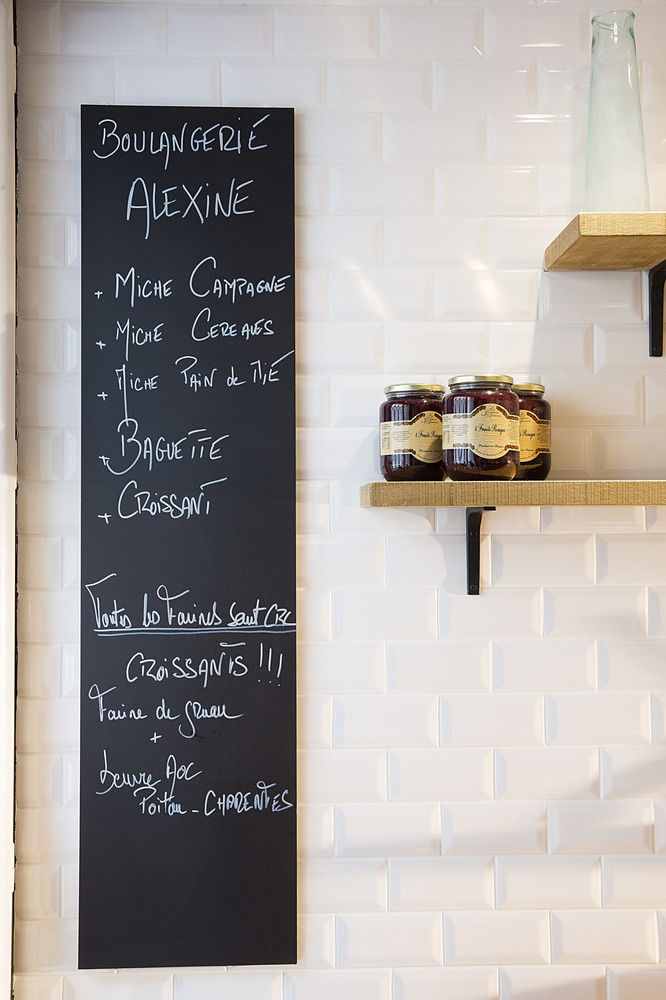 BOULANGERIE
ALEXINE
+ MICHE CAMPAGNE
+ MICHE CEREALES
+ MICHE PAIN de MIE
+ BAGUETTE
+ CROISSANT
Toutes les Farines sont CRC
CROISSANTS !!!
Farine de gruau
+
beurre AOC
Poitou - CHARENTES
4 Fruits Rouges
Rouges